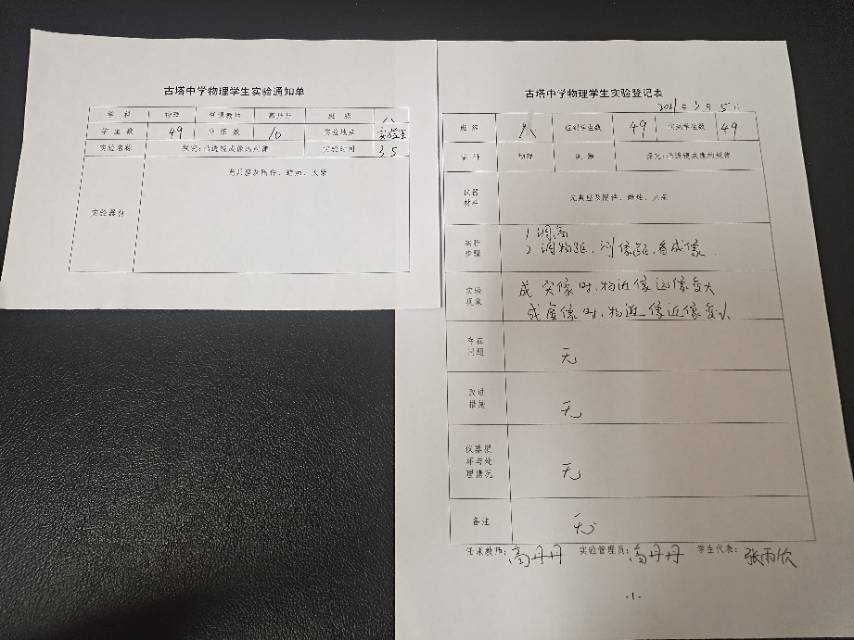 古塔中学物理学生实验通知单
学 科 物理 任课教师 高丹丹 班 级 八
学 生 数 49 分 组 数 10 实验地点 实验室
实验名称 探究凸透镜成像的规律 实验时间 3.5
实验器材 光具座及附件、蜡烛、火柴
古塔中学物理学生实验登记表
2021年3月5日
班 级 八 应到学生数 49 实到学生数 49
学 科 物理 探究凸透镜成像的规律
仪器
材料 光具座及附件、蜡烛、火柴
实验
步骤
1 调高
2 调物距、测像距、看成像.
实验
现象
成实像时,物近像远像变大
成虚像时,物近像近像变小
存在
问题 无
改进
措施 无
仪器损
坏与处
理情况 无
备注 无
任课教师:高丹丹 实验管理员:高丹丹 学生代表:张雨欣
·1·